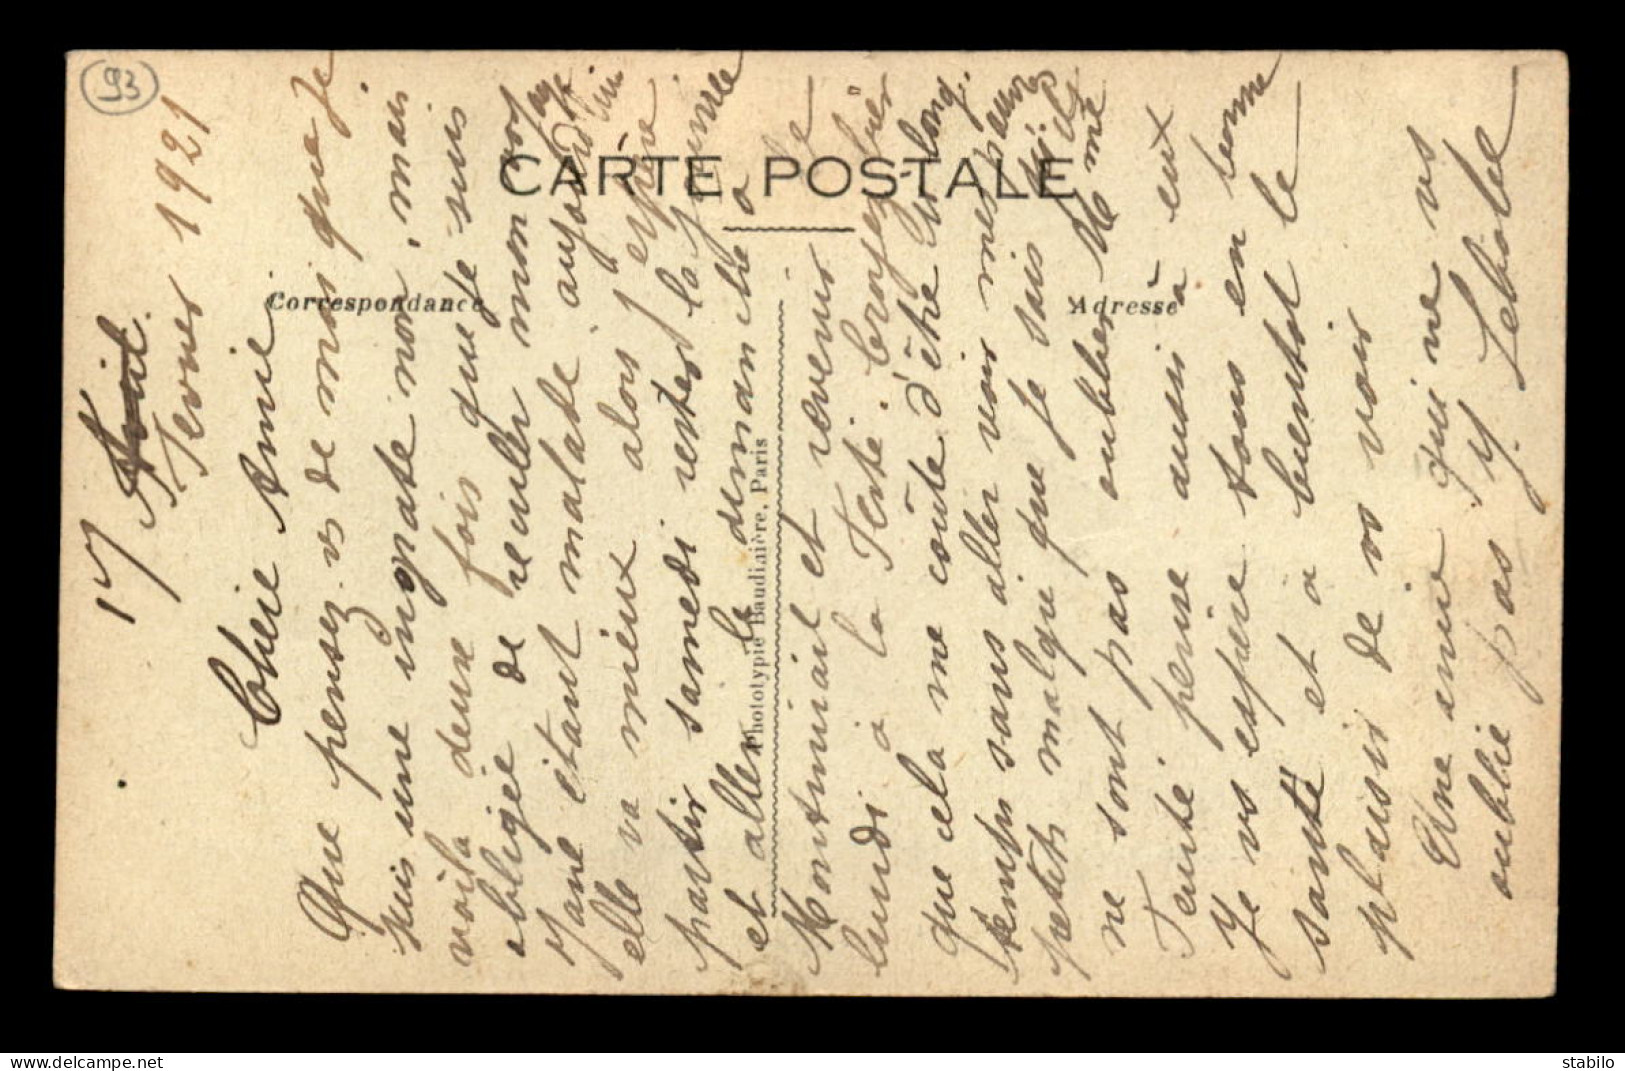 93
CARTE POSTALE
Correspondance
Adresse
Phototypie Baudinière, Paris
17 Avril
Février 1921
Chère Amie
Que pensez vs de moi que je
suis une ingrate non, mais
voila deux fois que je suis
obligée de reculer mon voyage
Jane étant malade aujourd'hui
elle va mieux alors j'espère
partir samedi rester la journée
et aller le dimanche a
Montmiail et revenir le
lundi à la Ferté. Croyez bien
que cela me coûte d'être si long
temps sans aller voir mes pauvres
petits malgré que je sais qu'ils
ne sont pas oublier Mme
Teuté pense aussi à eux
Je vs espère tous en bonne
santé et à bientôt le
plaisir de vs voir
Une amie qui ne vs
oublie pas Y. Lebolee
stabilo